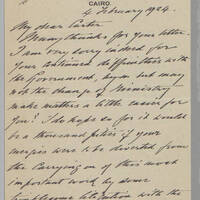 CAIRO.
4 February 1924.
My dear Carter
Many thanks for your letter.
I am very sorry indeed for
your continued difficulties with
the Government, but may
not the change of Ministry
make matters a little easier for
you? I do hope so for it would
be a thousand pities if your
energies were to be diverted from
the carrying on of this most
important work by some
litigation with the